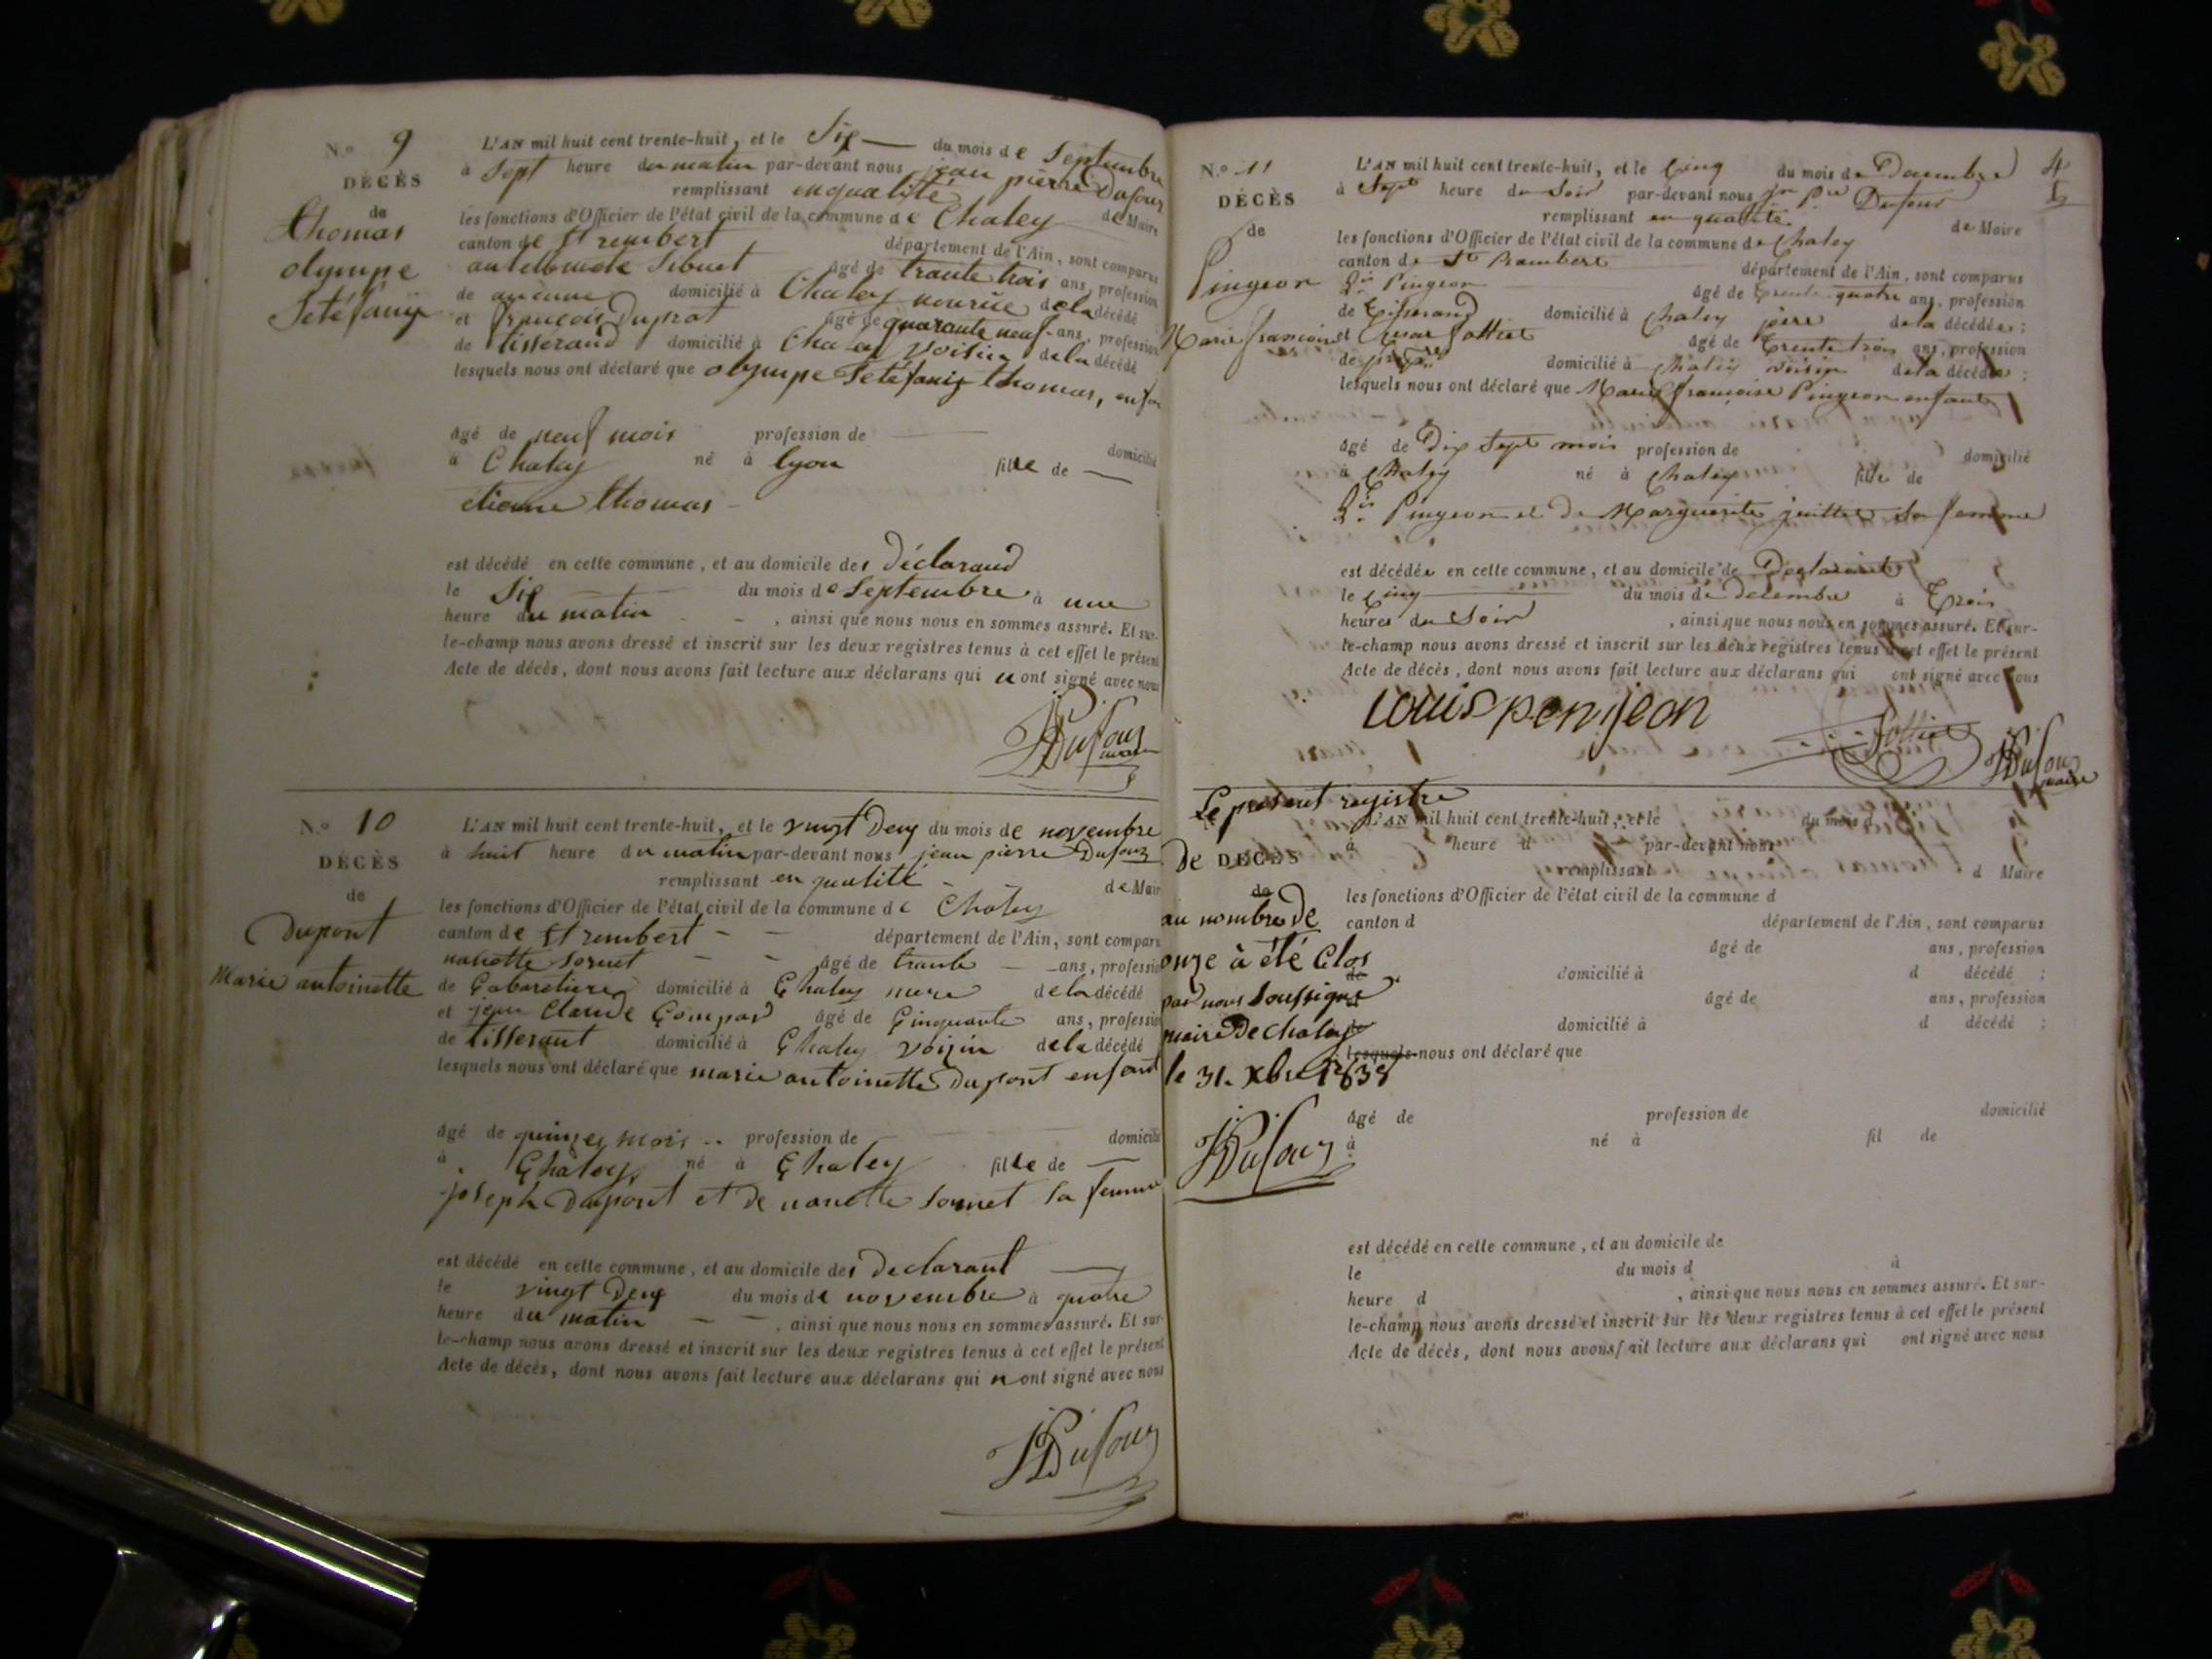 N.o 9
DÉCÈS
de
thomas
olympe
Setéfanix
L'AN mil huit cent trente-huit, et le Six du mois de Septembre
à Sept heure du matin par-devant nous jean pierre Dufour
remplissant en qualité de Maire
les fonctions d'Officier de l'état civil de la commune de Chaley
canton de St rembert département de l'Ain, sont comparus
Sibuet âgé de trante trois ans, profession
de aucune domicilié à Chaley nourice de la décédé
et françois Duprat âgé de quarante neuf ans, profession
de tisserand domicilié à Chaley voisin de la décédé
lesquels nous ont déclaré que olympe Setéfanix thomas, enfan
âgé de neuf mois profession de domicilié
à Chaley né à lyon fille de
etienne thomas
est décédé en cette commune, et au domicile des Déclarand
le Six du mois de Septembre à une
heure du matin , ainsi que nous nous en sommes assuré. Et sur-
le-champ nous avons dressé et inscrit sur les deux registres tenus à cet effet le présent
Acte de décès, dont nous avons fait lecture aux déclarans qui n ont signé avec nous
JPDufour
maire
N.o 10
DÉCÈS
de
Dupont
Marie antoinette
L'AN mil huit cent trente-huit, et le vingt Deux du mois de novembre
à huit heure du matin par-devant nous jean pierre Dufour
remplissant en qualité de Mair
les fonctions d'Officier de l'état civil de la commune de Chaley
canton de St rembert département de l'Ain, sont compar
nanette Sornet âgé de trante ans, professio
de Cabaretiere domicilié à Chaley mere de la décédé
et jean Claude Gompar âgé de Cinquante ans, professio
de tisserant domicilié à Chaley voizin de la décédé
lesquels nous ont déclaré que marie antoinette Dupont enfant
âgé de quinzes mois profession de domicilié
à Chaley né à Chaley fille de
joseph Dupont et de nanette Sornet sa femme
est décédé en cette commune, et au domicile des Declarant
le vingt Deux du mois de novembre à quatre
heure du matin , ainsi que nous nous en sommes assuré. Et sur-
le-champ nous avons dressé et inscrit sur les deux registres tenus à cet effet le présent
Acte de décès, dont nous avons fait lecture aux déclarans qui n ont signé avec nous
JPDufour
4
N.o 11
DÉCÈS
de
Pingeon
Marie françoise
L'AN mil huit cent trente-huit, et le Cinq du mois de Décembre
à Sept heure du Soir par-devant nous jn Pre Dufour
remplissant en qualité de Maire
les fonctions d'Officier de l'état civil de la commune de Chaley
canton de St Rambert département de l'Ain, sont comparus
Pingeon âgé de trente quatre ans, profession
de Tisserand domicilié à Chaley père de la décédée;
et âgé de Trente trois ans, profession
de domicilié à Chaley voisin de la décédée;
lesquels nous ont déclaré que Marie françoise Pingeon enfant
âgé de Dix Sept mois profession de domicilié
à Chaley né à Chaley fille de
Pingeon et De Marguerite juillet Sa femme
est décédée en cette commune, et au domicile de Déclarant
le Cinq du mois de Decembre à Trois
heures du Soir , ainsi que nous nous en sommes assuré. Et sur-
le-champ nous avons dressé et inscrit sur les deux registres tenus à cet effet le présent
Acte de décès, dont nous avons fait lecture aux déclarans qui ont signé avec nous
Louis penijeon
JPDufour
maire
Le présent registre
De DÉCÈS
de
au nombre De
onze à été Clos
par nous Soussigné
maire De chaley
le 31. Xbre 1838
JPDufour
L'AN mil huit cent trente-huit, et le du mois d
à heure d par-devant nous
remplissant d Maire
les fonctions d'Officier de l'état civil de la commune d
canton d département de l'Ain, sont comparus
âgé de ans, profession
de domicilié à d décédé ;
âgé de ans, profession
de domicilié à d décédé ;
lesquels nous ont déclaré que
âgé de profession de domicilié
à né à fil de
est décédé en cette commune, et au domicile de
le du mois d à
heure d , ainsi que nous nous en sommes assuré. Et sur-
le-champ nous avons dressé et inscrit sur les deux registres tenus à cet effet le présent
Acte de décès, dont nous avons fait lecture aux déclarans qui ont signé avec nous